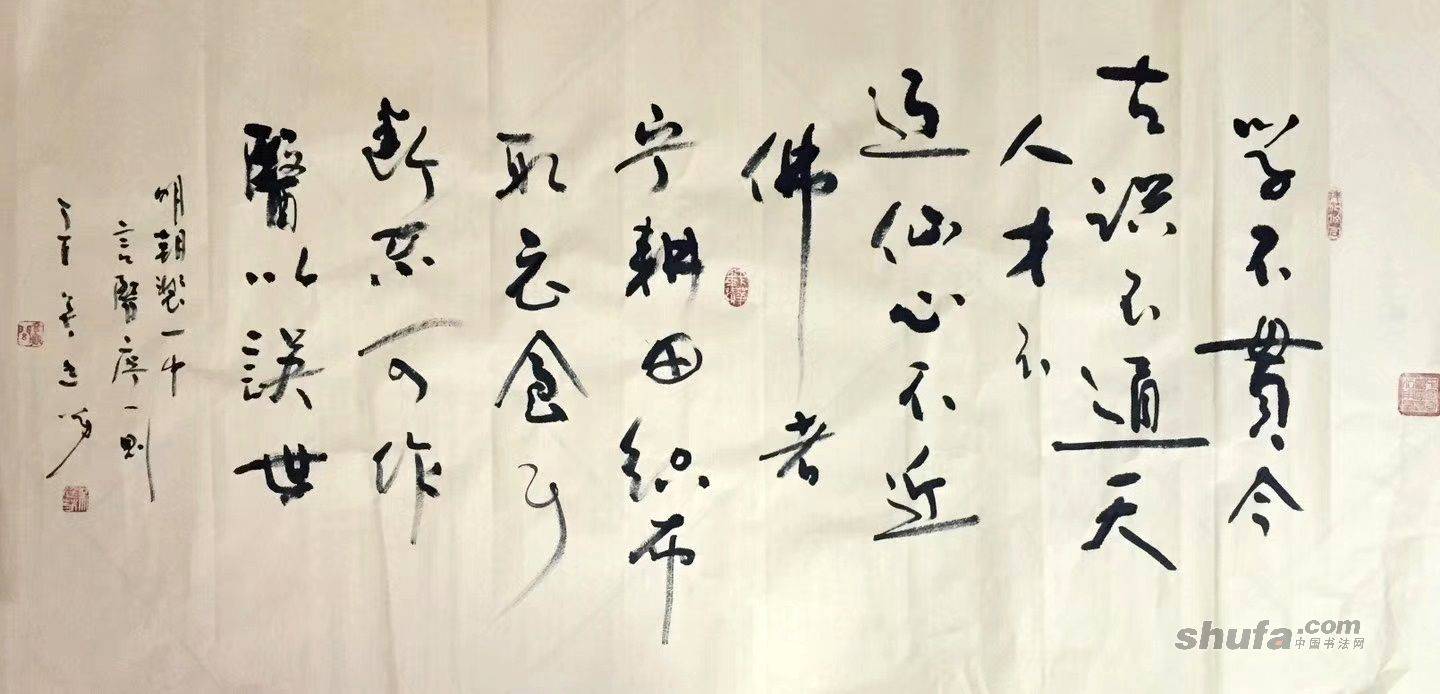 学不貫今
古识不通天
人才不
近仙心不近
佛者
宁耕田织布
取衣食耳
断不可作
醫以誤世
明朝裴一中
言醫序一则
丁酉
shufa.com
中国书法网